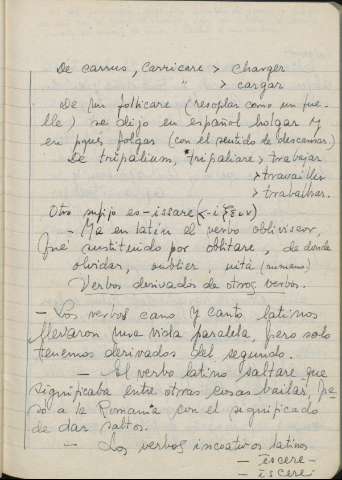 De carrus, Carricare > charger
" > cargar
De un follicare (resoplar como un fue-
lle) se dijo en español holgar y
en pgués folgar (con el sentido de descansar).
De tripalium, *tripaliare > trabajar
> travailler
> trabalhar.
Otro sufijo es -issare (<-ιξειν)
- Ya en latín el verbo obliviscor,
fué sustituido por oblitare, de donde
olvidar, oublier, uitá (rumano)
Verbos derivados de otros verbos.
- Los verbos cano y canto latinos
llevaron una vida paralela, pero solo
tenemos derivados del segundo.
- El verbo latino saltare que
significaba entre otras cosas bailar, pa-
só a la Romania con el significado
de dar saltos.
- Los verbos incoativos latinos
- escere -
- iscere